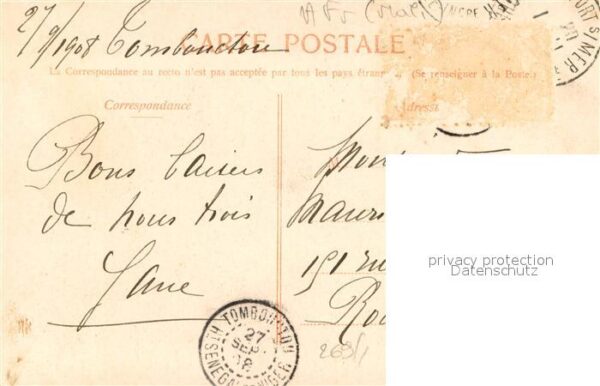 27/9/1908 Tombouctou
CARTE POSTALE
La Correspondance au recto n'est pas acceptée par tous les pays étran (Se renseigner à la Poste.)
Correspondance
Adresse
Bons baisers
de nous trois
Jane
Mon
Maur
151 ru
Ro
privacy protection
Datenschutz
TOMBOUCTOU
27
SEPT
08
HT SENEGAL ET NIGER
RT S/MER
2691